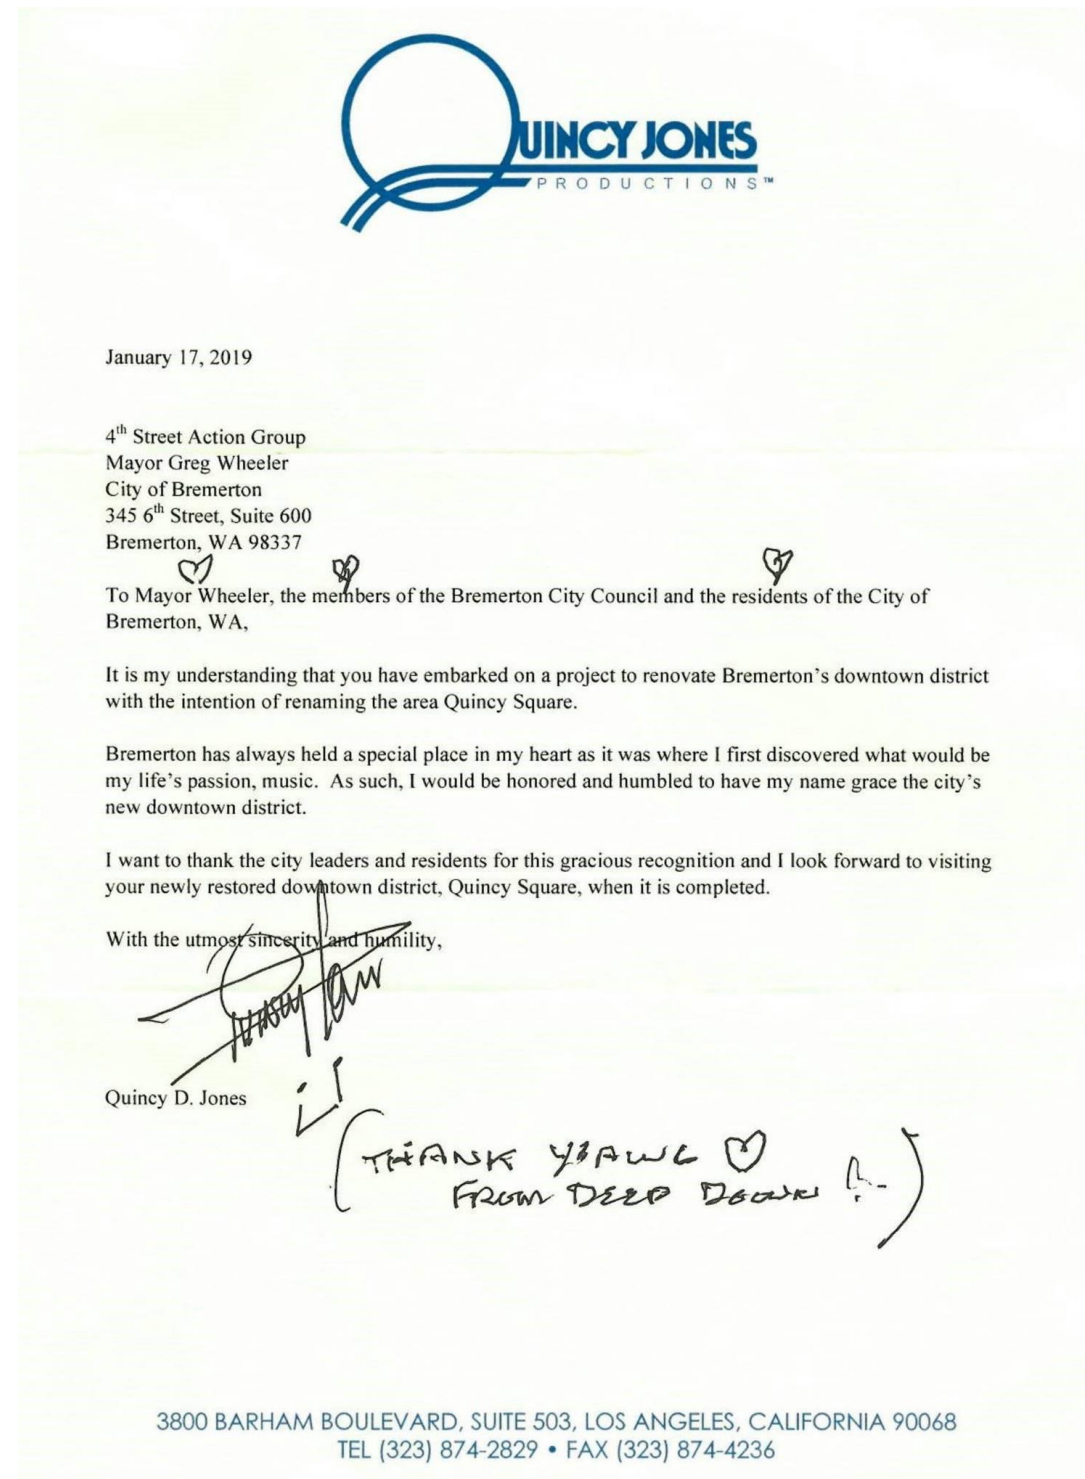 QUINCY JONES
PRODUCTIONS™
January 17, 2019
4th Street Action Group
Mayor Greg Wheeler
City of Bremerton
345 6th Street, Suite 600
Bremerton, WA 98337
To Mayor Wheeler, the members of the Bremerton City Council and the residents of the City of
Bremerton, WA,
It is my understanding that you have embarked on a project to renovate Bremerton's downtown district
with the intention of renaming the area Quincy Square.
Bremerton has always held a special place in my heart as it was where I first discovered what would be
my life's passion, music.  As such, I would be honored and humbled to have my name grace the city's
new downtown district.
I want to thank the city leaders and residents for this gracious recognition and I look forward to visiting
your newly restored downtown district, Quincy Square, when it is completed.
With the utmost sincerity and humility,
Quincy D. Jones
(THANK ♡
FROM DEEP DOWN !)
3800 BARHAM BOULEVARD, SUITE 503, LOS ANGELES, CALIFORNIA 90068
TEL (323) 874-2829 • FAX (323) 874-4236